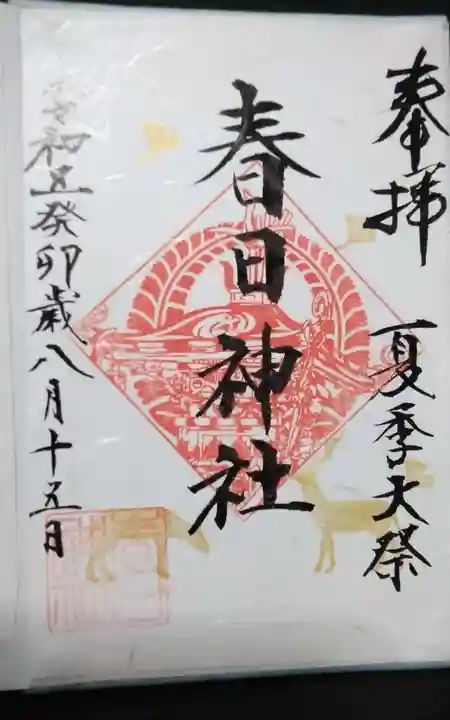 奉拝　夏季大祭
春日神社
令和五癸卯歳八月十五日